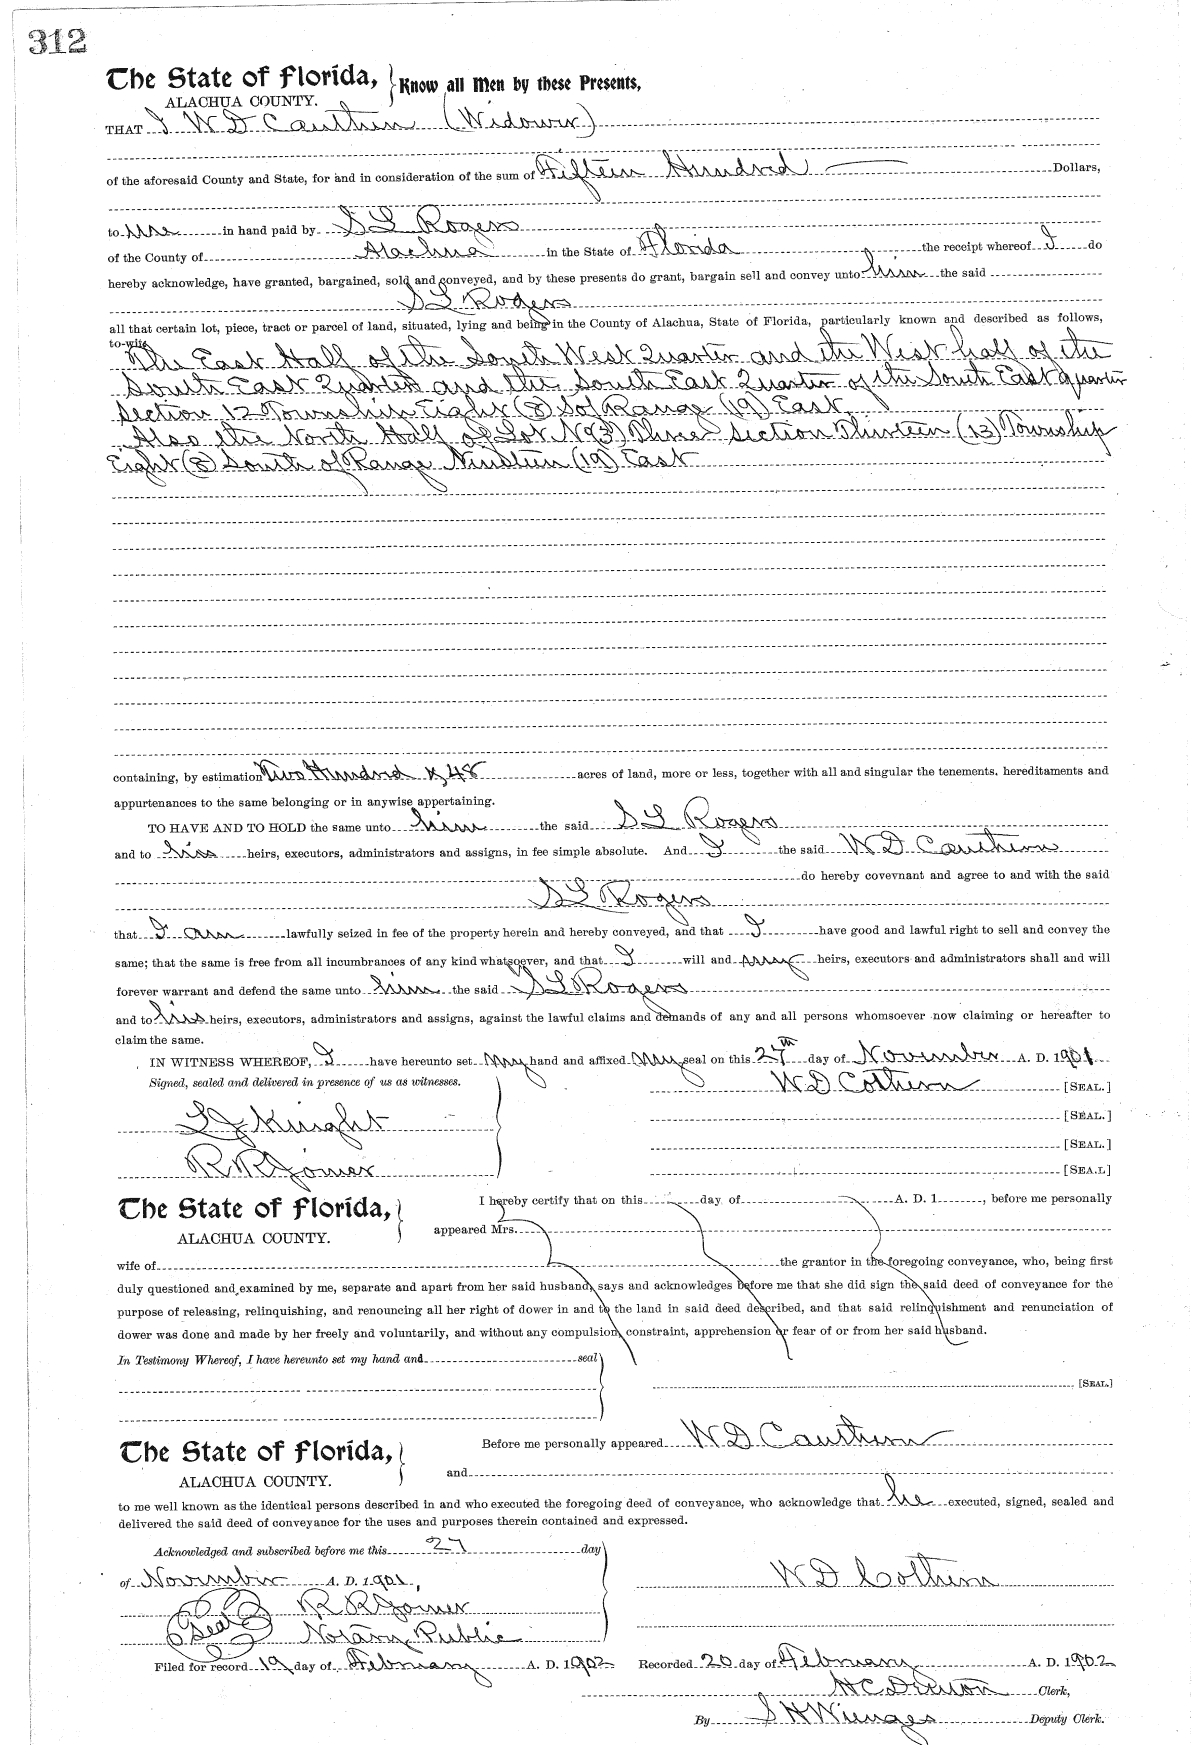 312
The State of Florida, Know all Men by these Presents,
ALACHUA COUNTY.
THAT I W D Cauthen (Widower)
of the aforesaid County and State, for and in consideration of the sum of Fifteen Hundred Dollars,
to me in hand paid by S L Rogers
of the County of Alachua in the State of Florida the receipt whereof I do
hereby acknowledge, have granted, bargained, sold and conveyed, and by these presents do grant, bargain sell and convey unto him the said
S L Rogers
all that certain lot, piece, tract or parcel of land, situated, lying and being in the County of Alachua, State of Florida, particularly known and described as follows,
to-wit:
The East Half of the South West Quarter and the West half of the
South East Quarter and the South East Quarter of the South East quarter
Section 12 Township Eight (8) S of Range (19) East
Also the North Half of Lot No (3) Three Section Thirteen (13) Township
Eight (8) South of Range Nineteen (19) East
containing, by estimation Two Hundred & 48 acres of land, more or less, together with all and singular the tenements, hereditaments and
appurtenances to the same belonging or in anywise appertaining.
TO HAVE AND TO HOLD the same unto him the said S L Rogers
and to his heirs, executors, administrators and assigns, in fee simple absolute. And I the said W D Cauthern
do hereby covevnant and agree to and with the said
S L Rogers
that I am lawfully seized in fee of the property herein and hereby conveyed, and that I have good and lawful right to sell and convey the
same; that the same is free from all incumbrances of any kind whatsoever, and that I will and my heirs, executors and administrators shall and will
forever warrant and defend the same unto him the said S L Rogers
and to his heirs, executors, administrators and assigns, against the lawful claims and demands of any and all persons whomsoever now claiming or hereafter to
claim the same.
IN WITNESS WHEREOF, I have hereunto set my hand and affixed my seal on this 27th day of November A. D. 1901
Signed, sealed and delivered in presence of us as witnesses. W D Cothern [SEAL.]
[SEAL.]
L J Knight
[SEAL.]
R R Joiner [SEAL]
The State of Florida, I hereby certify that on this day of A. D. 1 , before me personally
ALACHUA COUNTY. appeared Mrs.
wife of the grantor in the foregoing conveyance, who, being first
duly questioned and examined by me, separate and apart from her said husband, says and acknowledges before me that she did sign the said deed of conveyance for the
purpose of releasing, relinquishing, and renouncing all her right of dower in and to the land in said deed described, and that said relinquishment and renunciation of
dower was done and made by her freely and voluntarily, and without any compulsion, constraint, apprehension or fear of or from her said husband.
In Testimony Whereof, I have hereunto set my hand and seal
[SEAL]
The State of Florida, Before me personally appeared W D Cauthern
ALACHUA COUNTY. and
to me well known as the identical persons described in and who executed the foregoing deed of conveyance, who acknowledge that he executed, signed, sealed and
delivered the said deed of conveyance for the uses and purposes therein contained and expressed.
Acknowledged and subscribed before me this 27 day
of November A. D. 1901, W D Cothern
R R Joiner
Seal Notary Public
Filed for record 19 day of February A. D. 1902 Recorded 20 day of February A. D. 1902
H C Denton Clerk,
By S H Wienges Deputy Clerk.